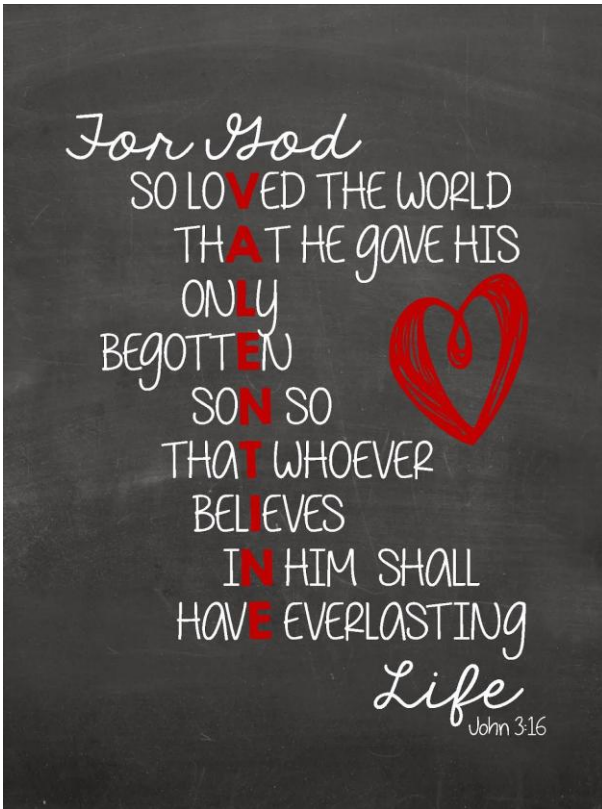 For God
SO LOVED THE WORLD
THAT HE gAVE HIS
ONLy
BEgOTTEN
SON SO
THAT WHOEVER
BELIEVES
IN HIM SHALL
HAVE EVERLASTINg
Life
John 3:16